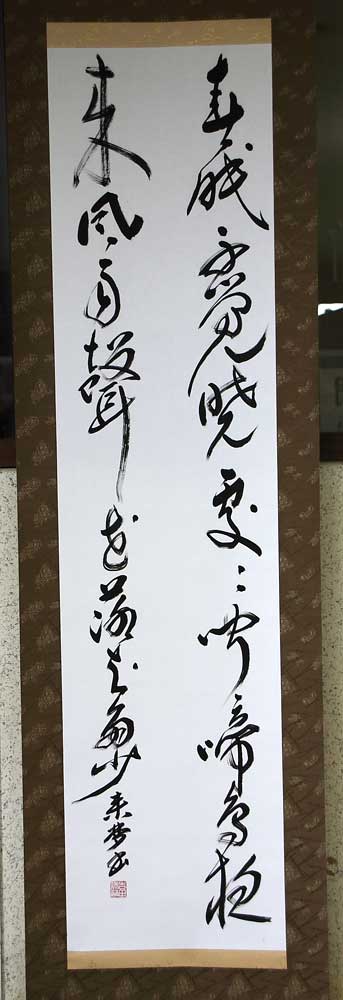 春眠不覚暁處々聞啼鳥夜
来風雨聲花落知多少
書